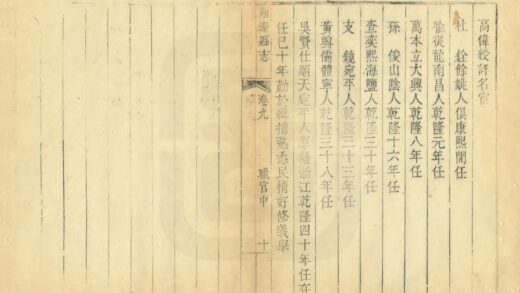 高偉綬詳名宦
杜 銓餘姚人俱康熙間任
從龍南昌人乾隆元年任
萬本立大興人乾隆八年任
孫 俊山陰人乾隆十六年任
查奕熙海鹽人乾隆三十年任
支 鏡宛平人乾隆三十三年任
黃興儒體寧人乾隆三十八年任
吳賢仕順天宛平人原籍浙江乾隆四十年任在
任已十年勤於緝捕熟悉民情好修義舉
新泰縣志 卷九 職官中 十